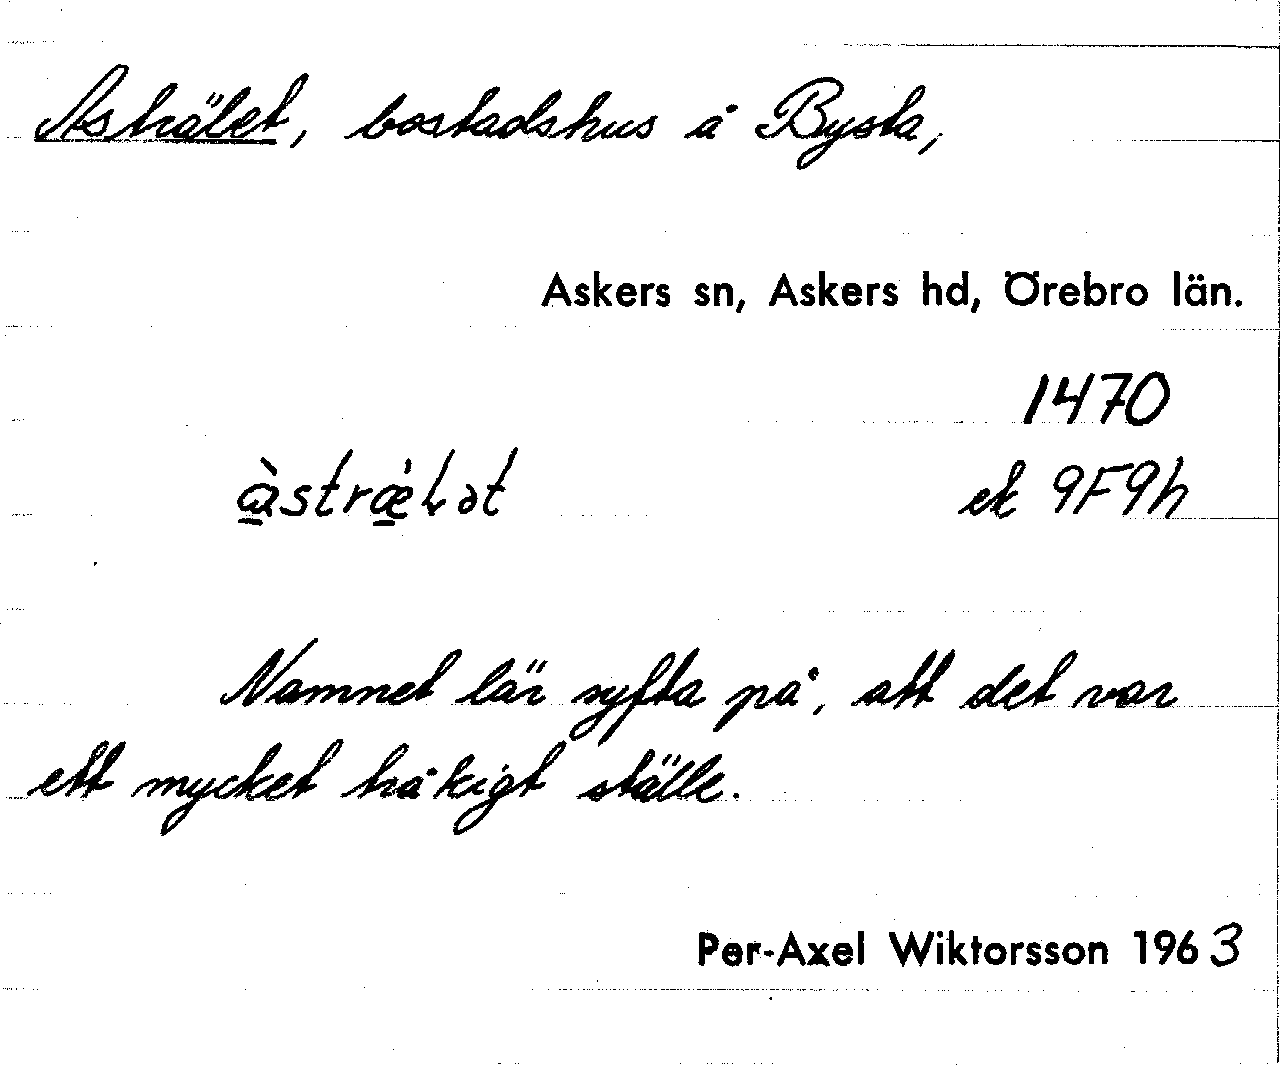 Asträlet, bostadshus å Bysta,
Askers sn, Askers hd, Örebro län.
1470
ek 9F9h
Namnet lär syfta på, att det var
ett mycket tråkigt ställe.
Per-Axel Wiktorsson 1963